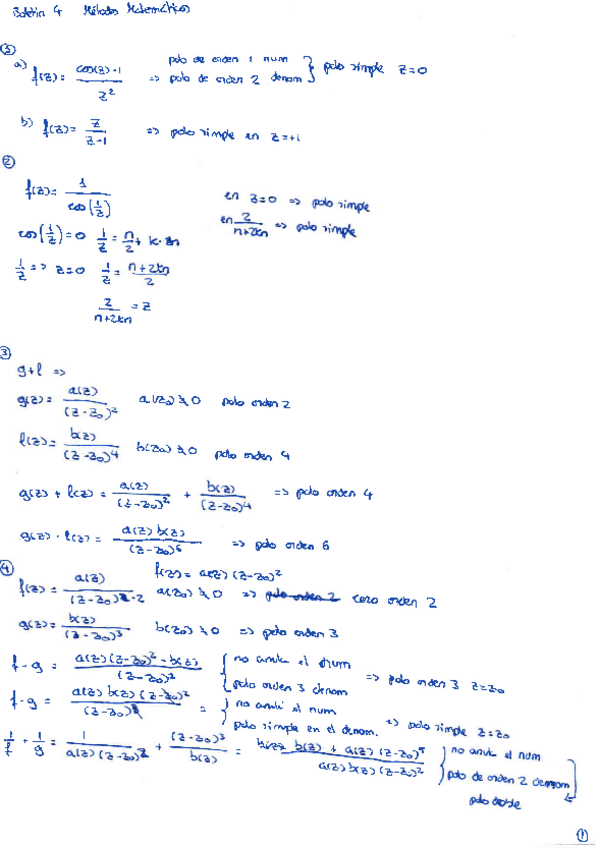 Boletín 4 Métodos Matemáticos
⑤
a) f(z) = cos(z)-1 / z² => polo de orden 1 num } polo simple z=0
polo de orden 2 denom
b) f(z) = z / z-1 => polo simple en z=+i
②
f(z) = 1 / cos(1/z) en z=0 => polo simple
cos(1/z)=0 1/z = π/2 + k·2π en 2/π+2kπ => polo simple
1/z => z=0 1/z = π+2kπ / 2
2/π+2kπ = z
③
g+l =>
g(z) = a(z) / (z-z₀)² a(z₀)≠0 polo orden 2
l(z) = b(z) / (z-z₀)⁴ b(z₀)≠0 polo orden 4
g(z) + l(z) = a(z)/(z-z₀)² + b(z)/(z-z₀)⁴ => polo orden 4
g(z) · l(z) = a(z) b(z) / (z-z₀)⁶ => polo orden 6
④ f(z) = a(z) (z-z₀)²
f(z) = a(z) / (z-z₀)-2 a(z₀)≠0 => cero orden 2
g(z) = b(z) / (z-z₀)³ b(z₀)≠0 => polo orden 3
f-g = a(z)(z-z₀)²-b(z) / (z-z₀)² { no anula el num
polo orden 3 denom => polo orden 3 z=z₀
f-g = a(z) b(z) (z-z₀)² / (z-z₀) = { no anula el num
polo simple en el denom. => polo simple z=z₀
1/f + 1/g = 1 / a(z)(z-z₀)² + (z-z₀)³ / b(z) = b(z) + a(z) (z-z₀)⁵ / a(z) b(z) (z-z₀)² { no anula el num
polo de orden 2 denom
polo doble
①